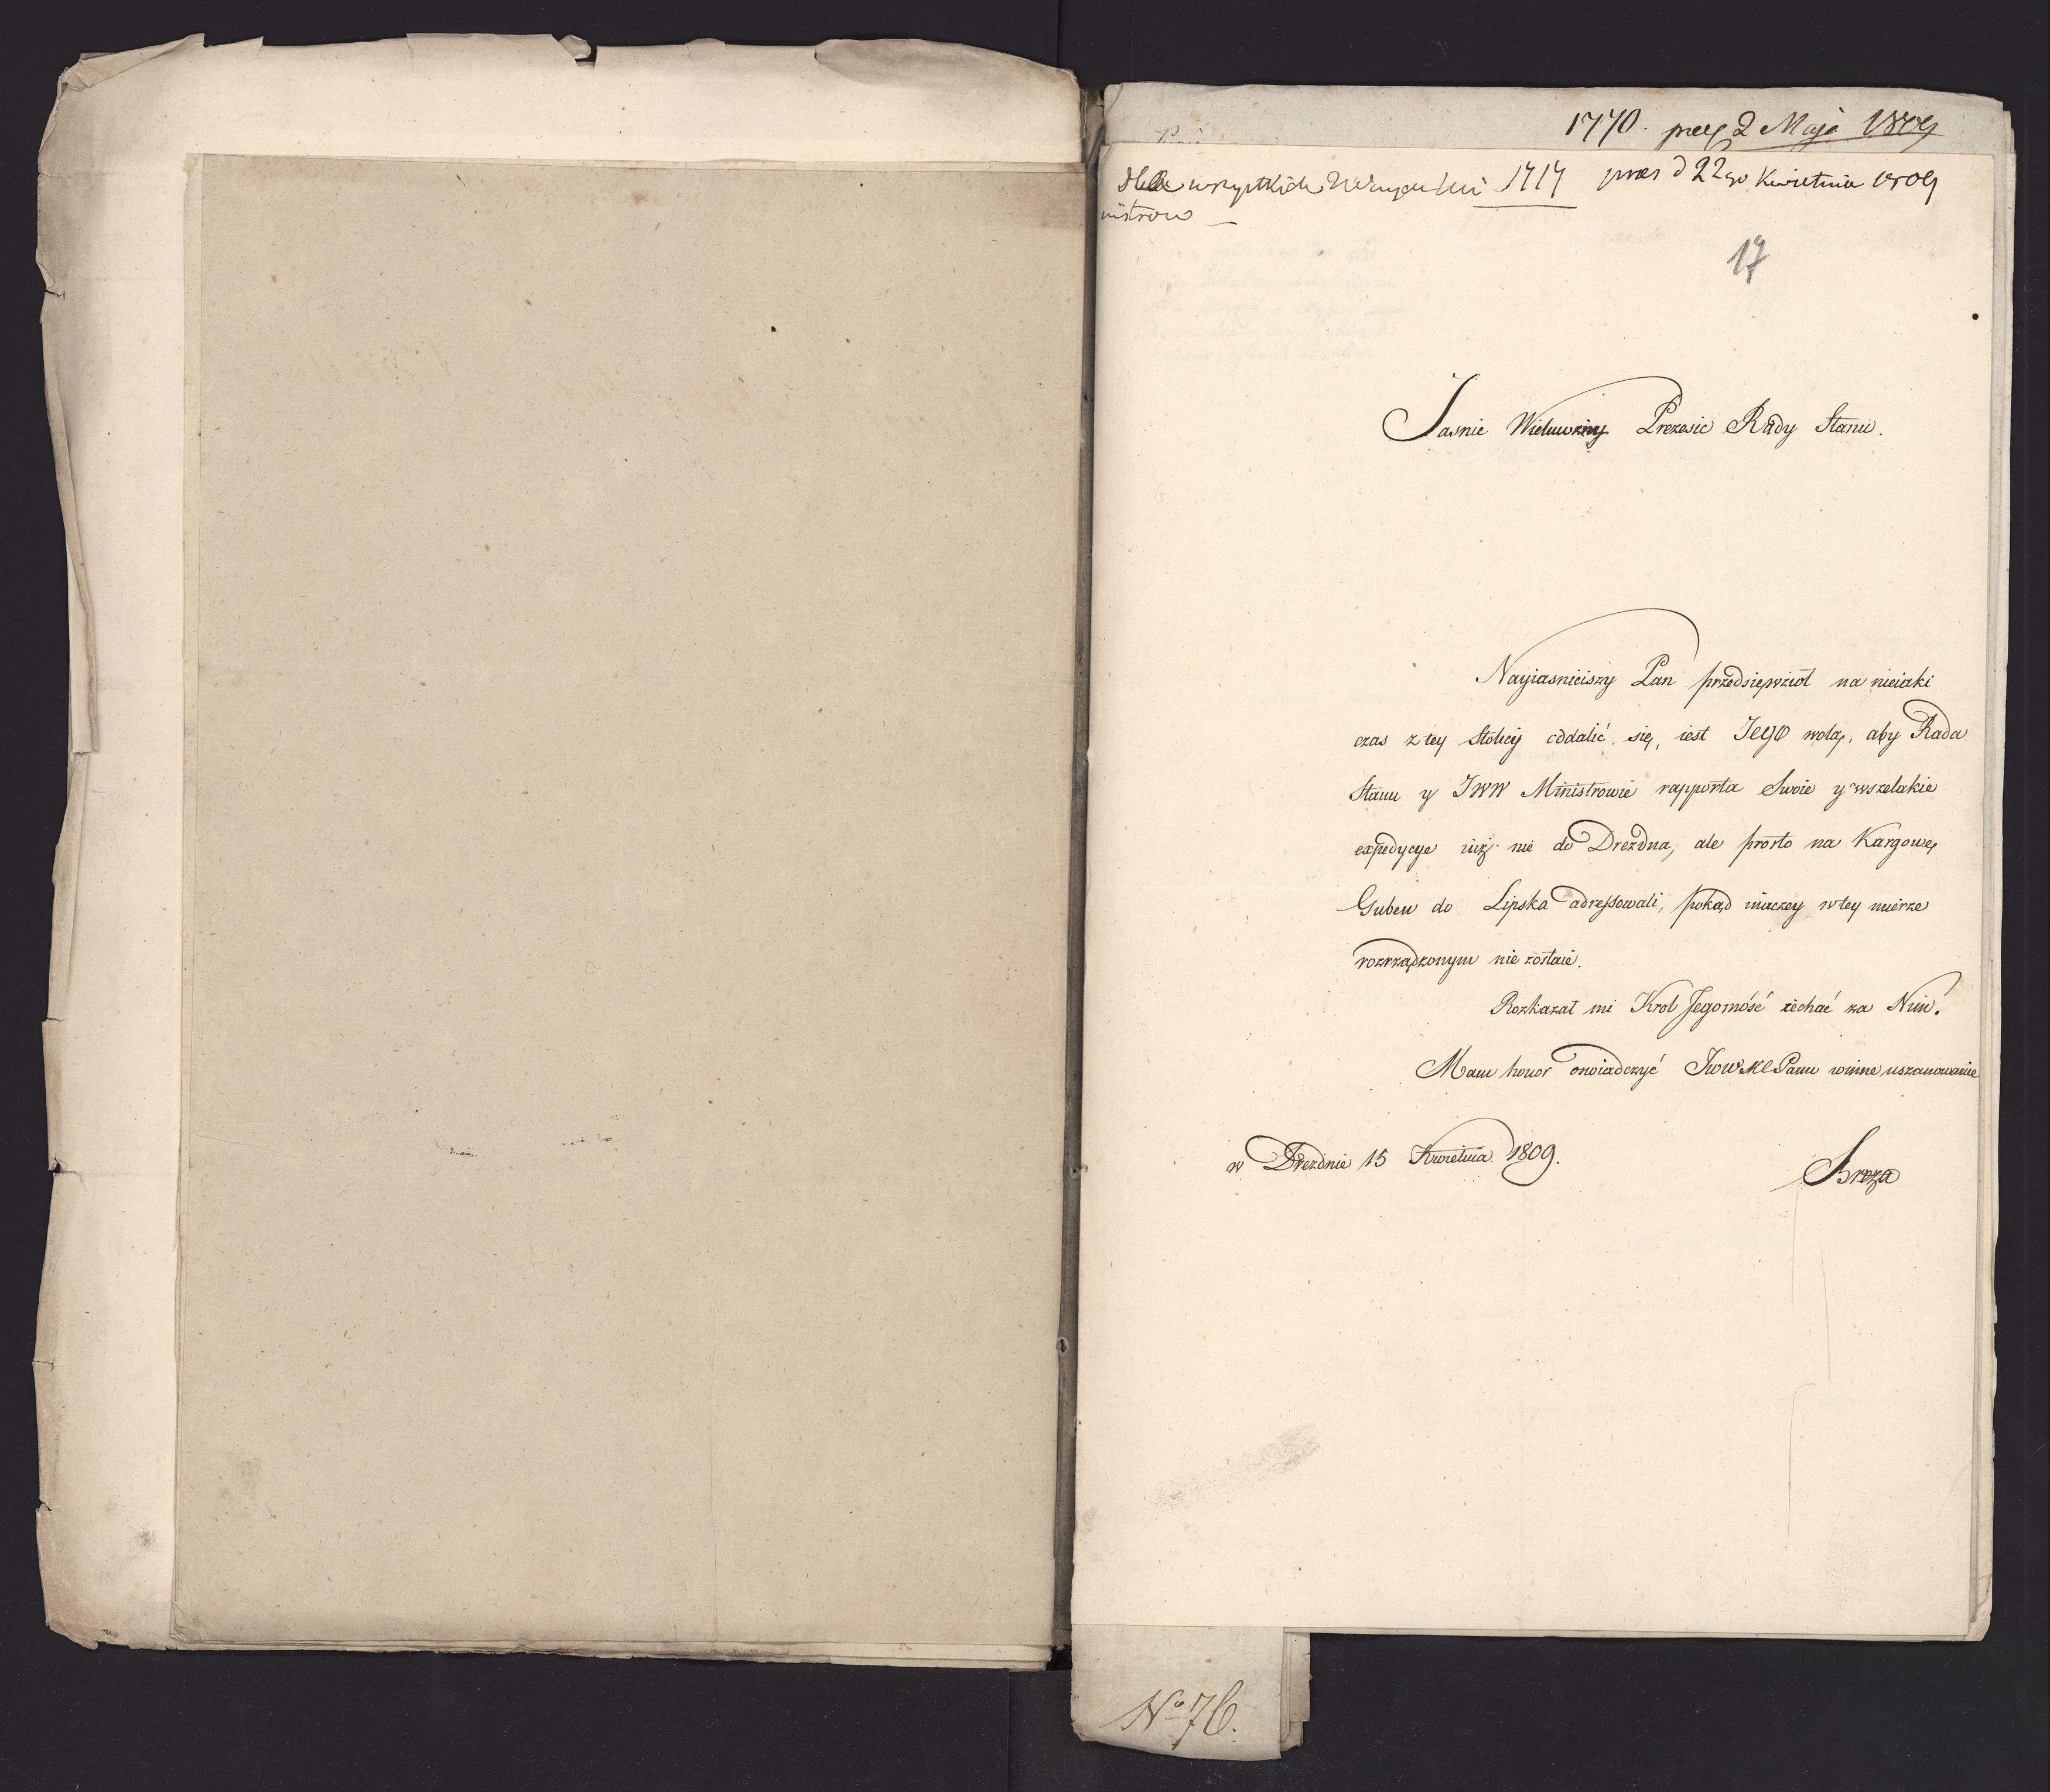 1770. prez 2 Maja 1809
wszystkich 1717 praes d 22go Kwietnia 1809
nistrow
17
Jasnie Wielmozny Prezesie Rady Stanu.
Nayiasnieiszy Pan przedsięwziol na nieiaki
czas z tey Stolicy oddalić się, iest Jego wolą, aby Rada
Stanu y JWW Ministrowie rapporta Swoie y wszelakie
expedycye iuż nie do Drezdna, ale prosto na Kargowę
Guben do Lipska adressowali, pokąd inaczey w tey mierze
rozrządzonym nie zostaie.
Rozkazał mi Krol Jegomość iechać za Nim.
Mam honor oswiadczyć Panu winne uszanowanie
w Dreznie 15 Kwietnia 1809.
Breza
No 76.